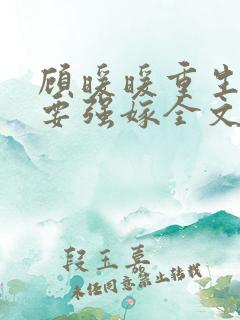 顾暖暖重生
要强嫁全文
段玉真
未经同意禁止转载